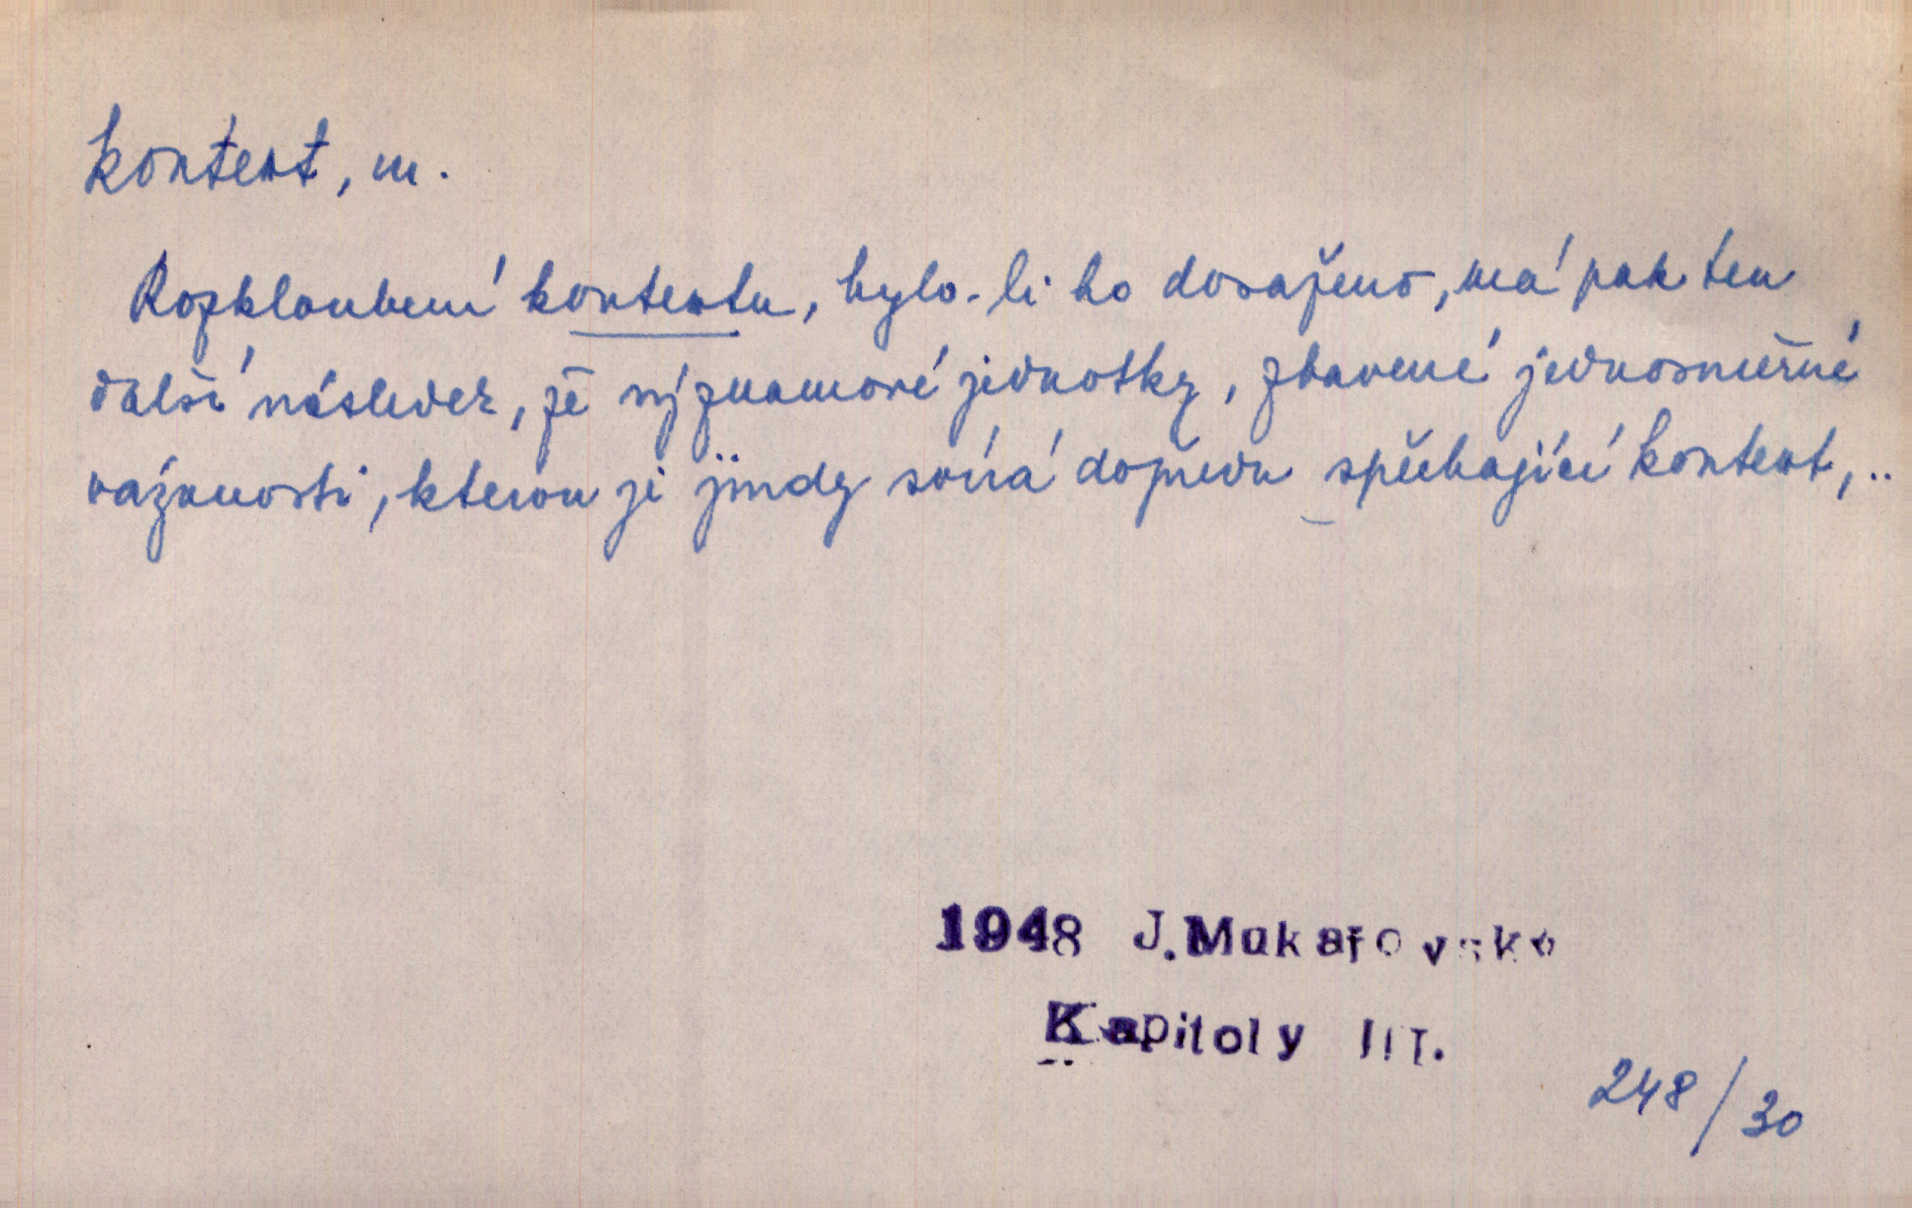 kontext, m.
Rozkloubení kontextu, bylo-li ho dosaženo, má pak ten
další následek, že významové jednotky, zbavené jednosměrné
vázanosti, kterou jí jindy svírá dopředu spěchající kontext, ..
1948 J. Mukařovský
Kapitoly III.
248/30